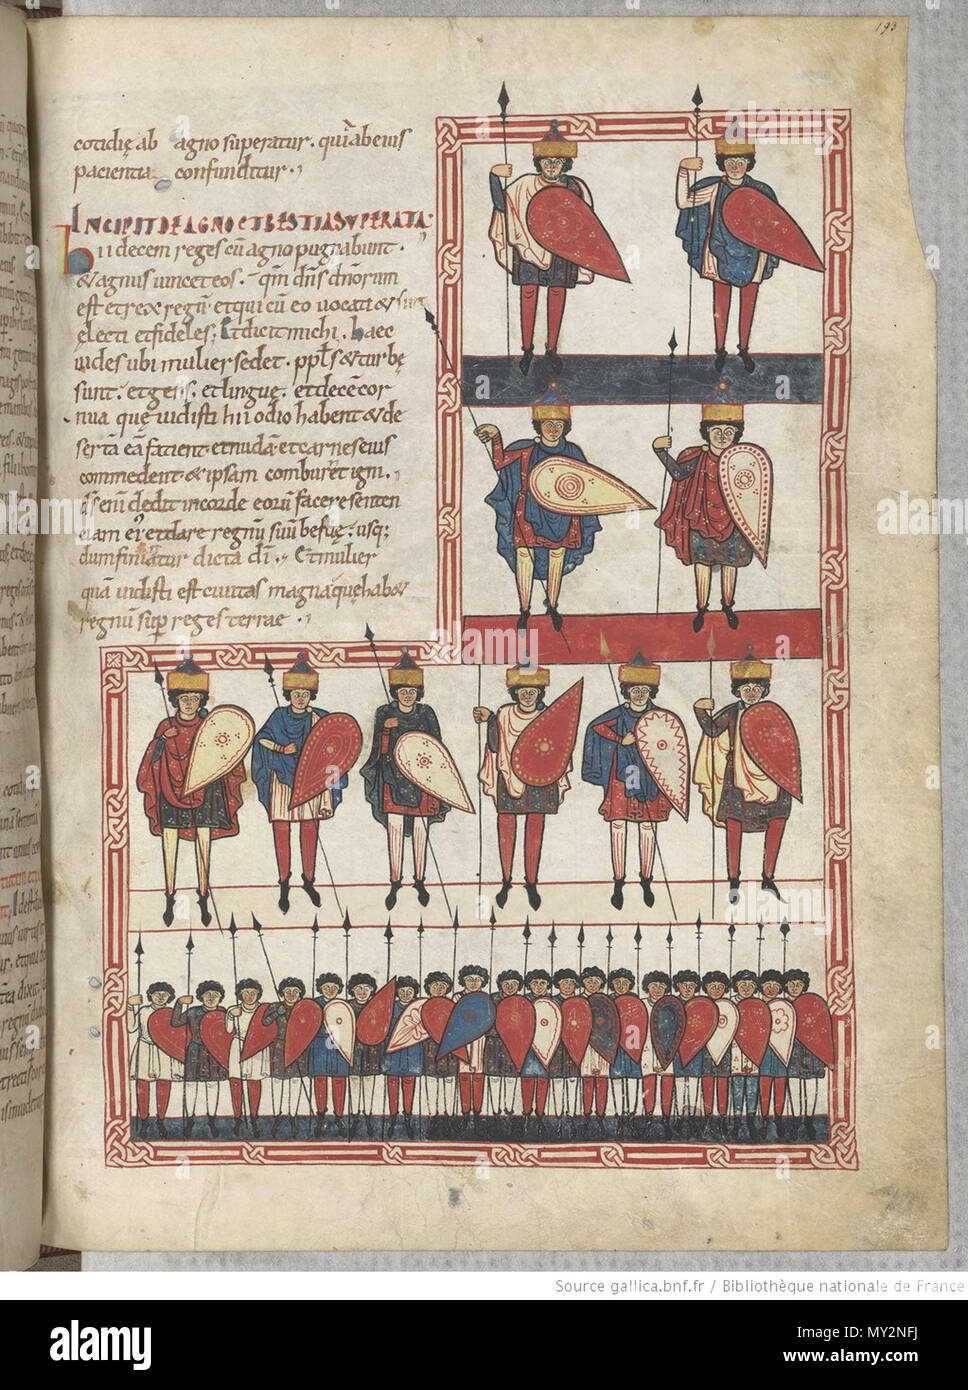 193
cotidię ab agno superatur. quia b eius
pacientia confunditur.
INCIPIT DE AGNO ET BESTIA SUPERATA.
hii decem reges cū agno pugnabunt.
& agnus vincet eos. qm̄ dn̄s dn̄orum
est et rex regū et qui cū eo vocati & sunt
electi et fideles; Et dicit michi. haec
vides ubi mulier sedet. ppl̄s & turbę
sunt. et gens. et linguę. et decē cor
nua quę vidisti hii odio habent & de
sertā eā facient et nudā et carnes eius
commedent & ipsam comburēt igni.
ds̄ enī dedit in corde eorū facere senten
ciam ei' et dare regnū suū bestię. usq;
dum finiātur dicta dī. Et mulier
quā vidisti est civitas magna quę hab&
regnū sup reges terrae.
Source gallica.bnf.fr / Bibliothèque nationale de France
alamy
Image ID: MY2NFJ
www.alamy.com